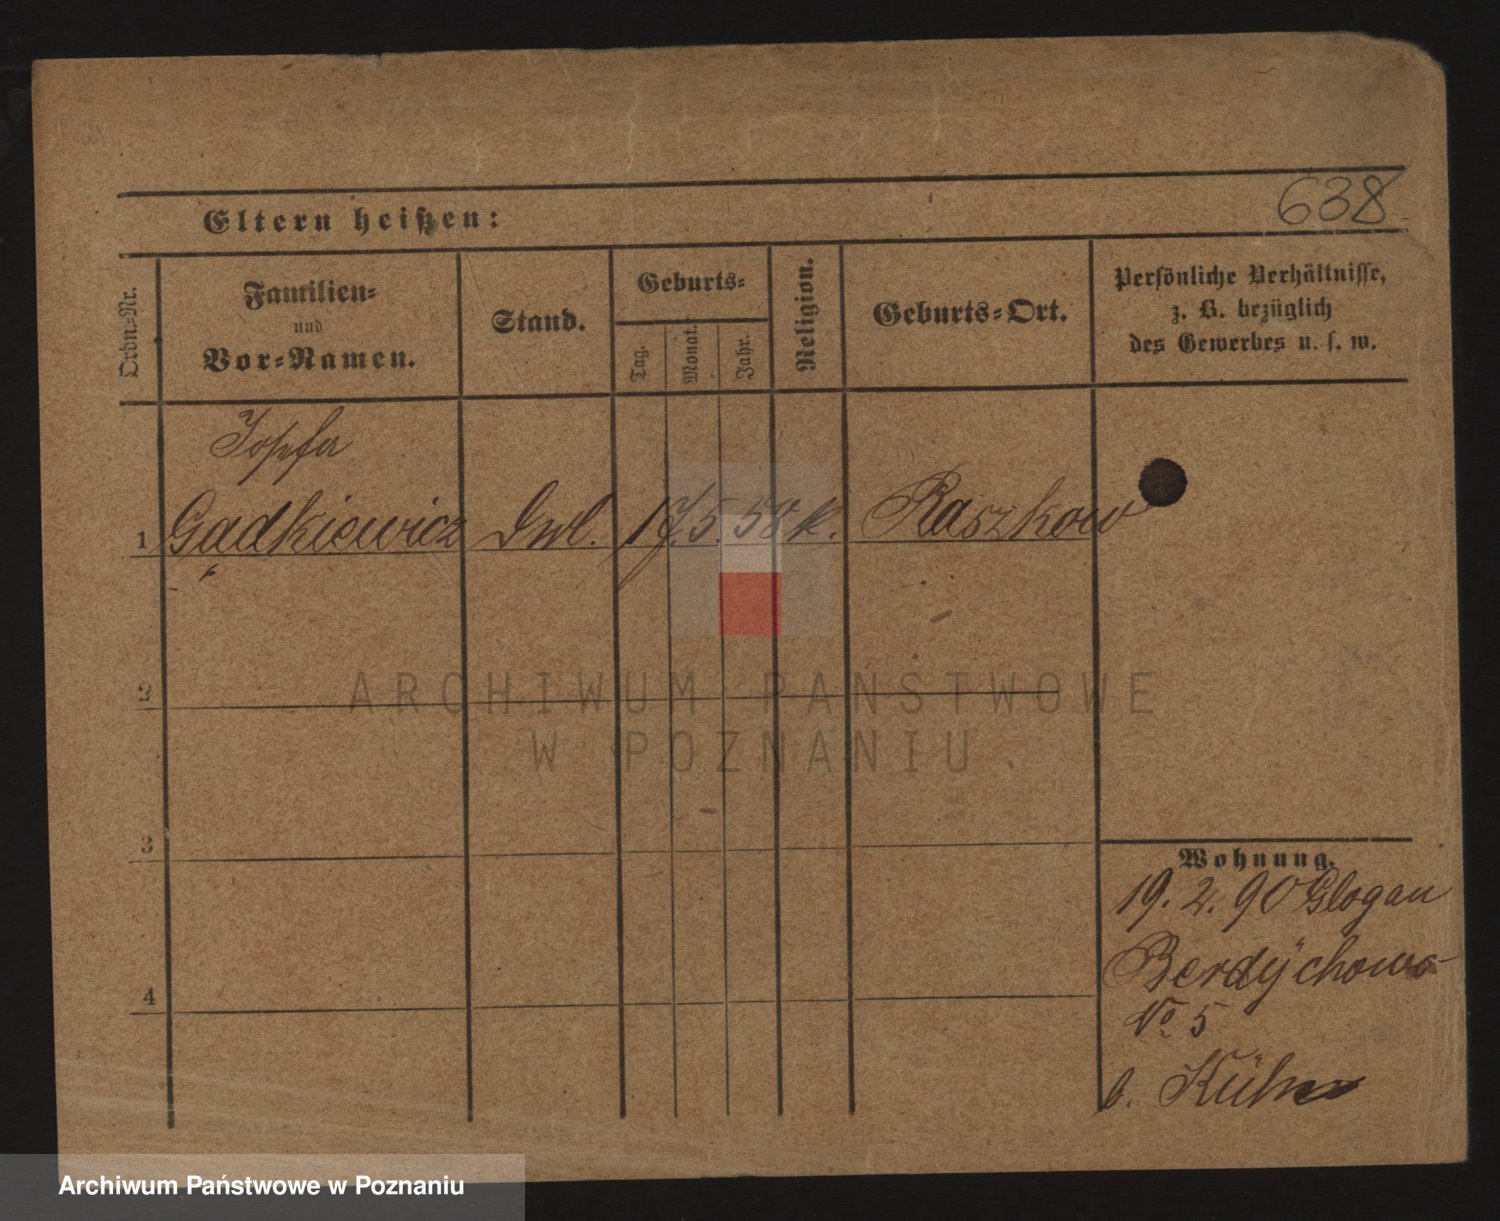 638
Eltern heißen:
Ordn.-Nr.
Familien-
und
Vor-Namen.
Stand.
Geburts-
Tag.
Monat.
Jahr.
Religion.
Geburts-Ort.
Persönliche Verhältnisse,
z. B. bezüglich
des Gewerbes u. s. w.
Josefa
1 Gądkiewicz 17. 5. 58 k. Raszkow
2
ARCHIWUM PAŃSTWOWE
W POZNANIU
3
Wohnung.
19. 2. 90 Glogau
Berdychowo
4
No 5
b. Kühn
Archiwum Państwowe w Poznaniu